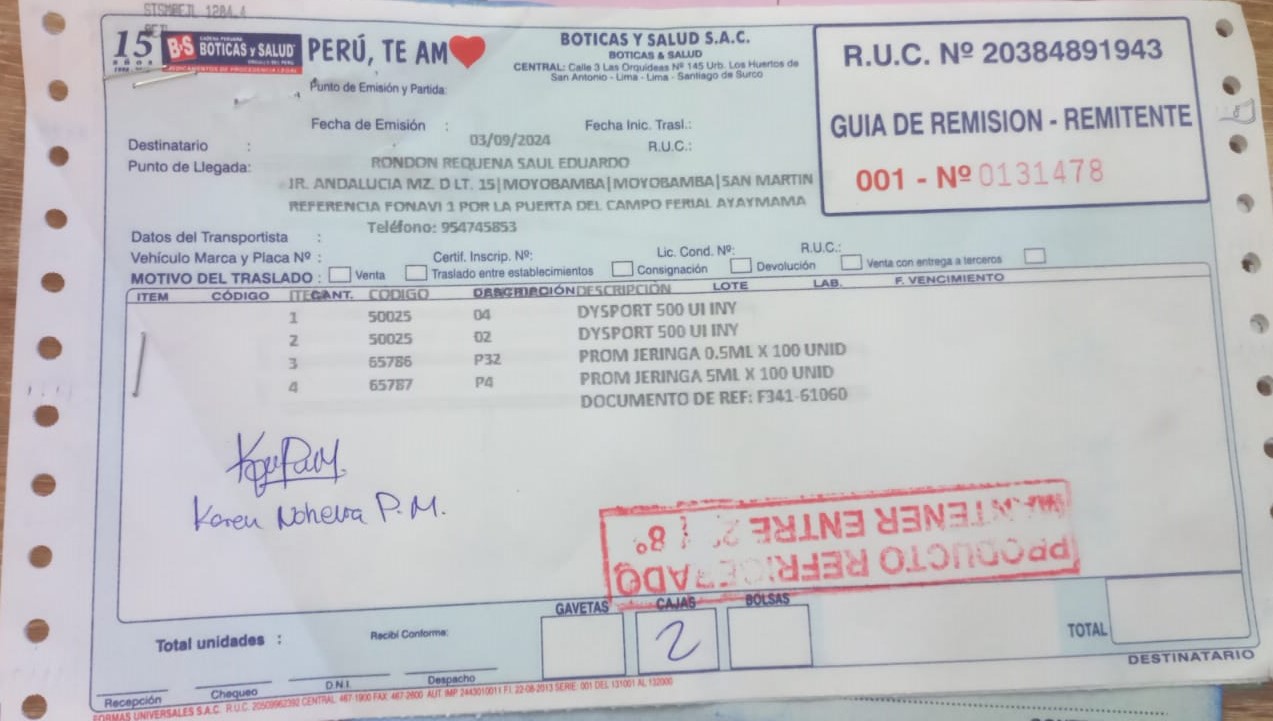 STSMBEJL 1284.4
15 AÑOS B·S BOTICAS y SALUD PERÚ, TE AM
BOTICAS Y SALUD S.A.C.
BOTICAS & SALUD
CENTRAL: Calle 3 Las Orquideas Nº 145 Urb. Los Huertos de
San Antonio - Lima - Lima - Santiago de Surco
R.U.C. Nº 20384891943
GUIA DE REMISION - REMITENTE
001 - Nº 0131478
Punto de Emisión y Partida:
Fecha de Emisión : 03/09/2024 Fecha Inic. Trasl.:
Destinatario : RONDON REQUENA SAUL EDUARDO R.U.C.:
Punto de Llegada: JR. ANDALUCIA MZ. D LT. 15|MOYOBAMBA|MOYOBAMBA|SAN MARTIN
REFERENCIA FONAVI 1 POR LA PUERTA DEL CAMPO FERIAL AYAYMAMA
Teléfono: 954745853
Datos del Transportista :
Vehículo Marca y Placa Nº : Certif. Inscrip. Nº: Lic. Cond. Nº: R.U.C.:
MOTIVO DEL TRASLADO : Venta Traslado entre establecimientos Consignación Devolución Venta con entrega a terceros
ITEM CÓDIGO CANT. DESCRIPCIÓN LOTE LAB. F. VENCIMIENTO
ITEM CODIGO DESCRIPCIÓN
1 50025 04 DYSPORT 500 UI INY
2 50025 02 DYSPORT 500 UI INY
3 65786 P32 PROM JERINGA 0.5ML X 100 UNID
4 65787 P4 PROM JERINGA 5ML X 100 UNID
DOCUMENTO DE REF: F341-61060
Karen Noheva P.M.
PRODUCTO REFRIGERADO
MANTENER ENTRE 2° 8°
GAVETAS CAJAS BOLSAS
2
Total unidades : Recibí Conforme: TOTAL
DESTINATARIO
Recepción Chequeo D.N.I. Despacho
FORMAS UNIVERSALES S.A.C. R.U.C. 20509962392 CENTRAL: 467-1900 FAX: 467-2600 AUT. IMP. 2443010011 F.I. 22-08-2013 SERIE: 001 DEL 131001 AL 132000